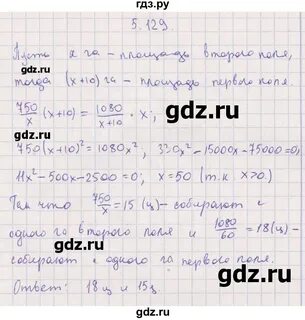 гдз.ру
5.129.
Пусть x га – площадь второго поля,
тогда (x+10) га – площадь первого поля.
750/x (x+10) = 1080/(x+10) · x;
750(x+10)² = 1080x², 330x² - 15000x - 75000 = 0,
11x² - 500x - 2500 = 0; x = 50 (т.к. x>0.)
Так что 750/x = 15 (ц) – собирают с
одного га второго поля и 1080/60 = 18 (ц) –
собирают с одного га первого поля.
Ответ: 18 ц и 15 ц.
gdz.top
gdz.top
gdz.top
gdz.top
gdz.top
gdz.top